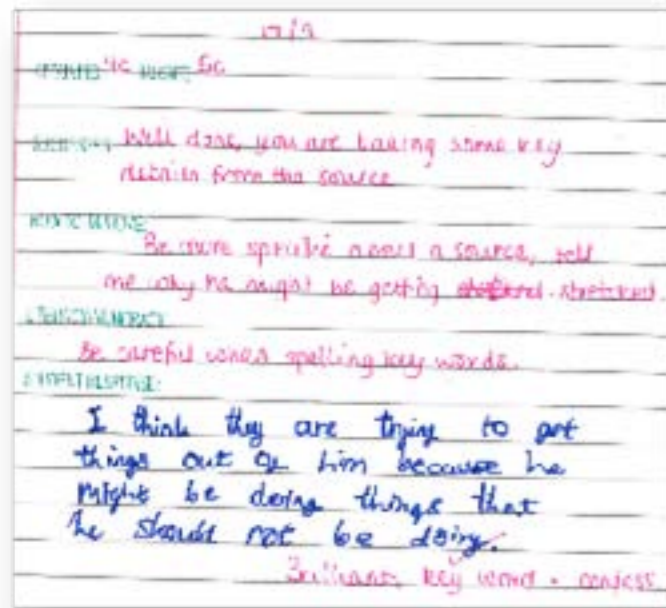 4c 5c
Well done, you are taking some key
details from the source
Be more specific about a source, tell
me why he might be getting stretched.
Be careful when spelling key words.
I think they are trying to get
things out of him because he
might be doing things that
he should not be doing.
Brilliant, key word = confess